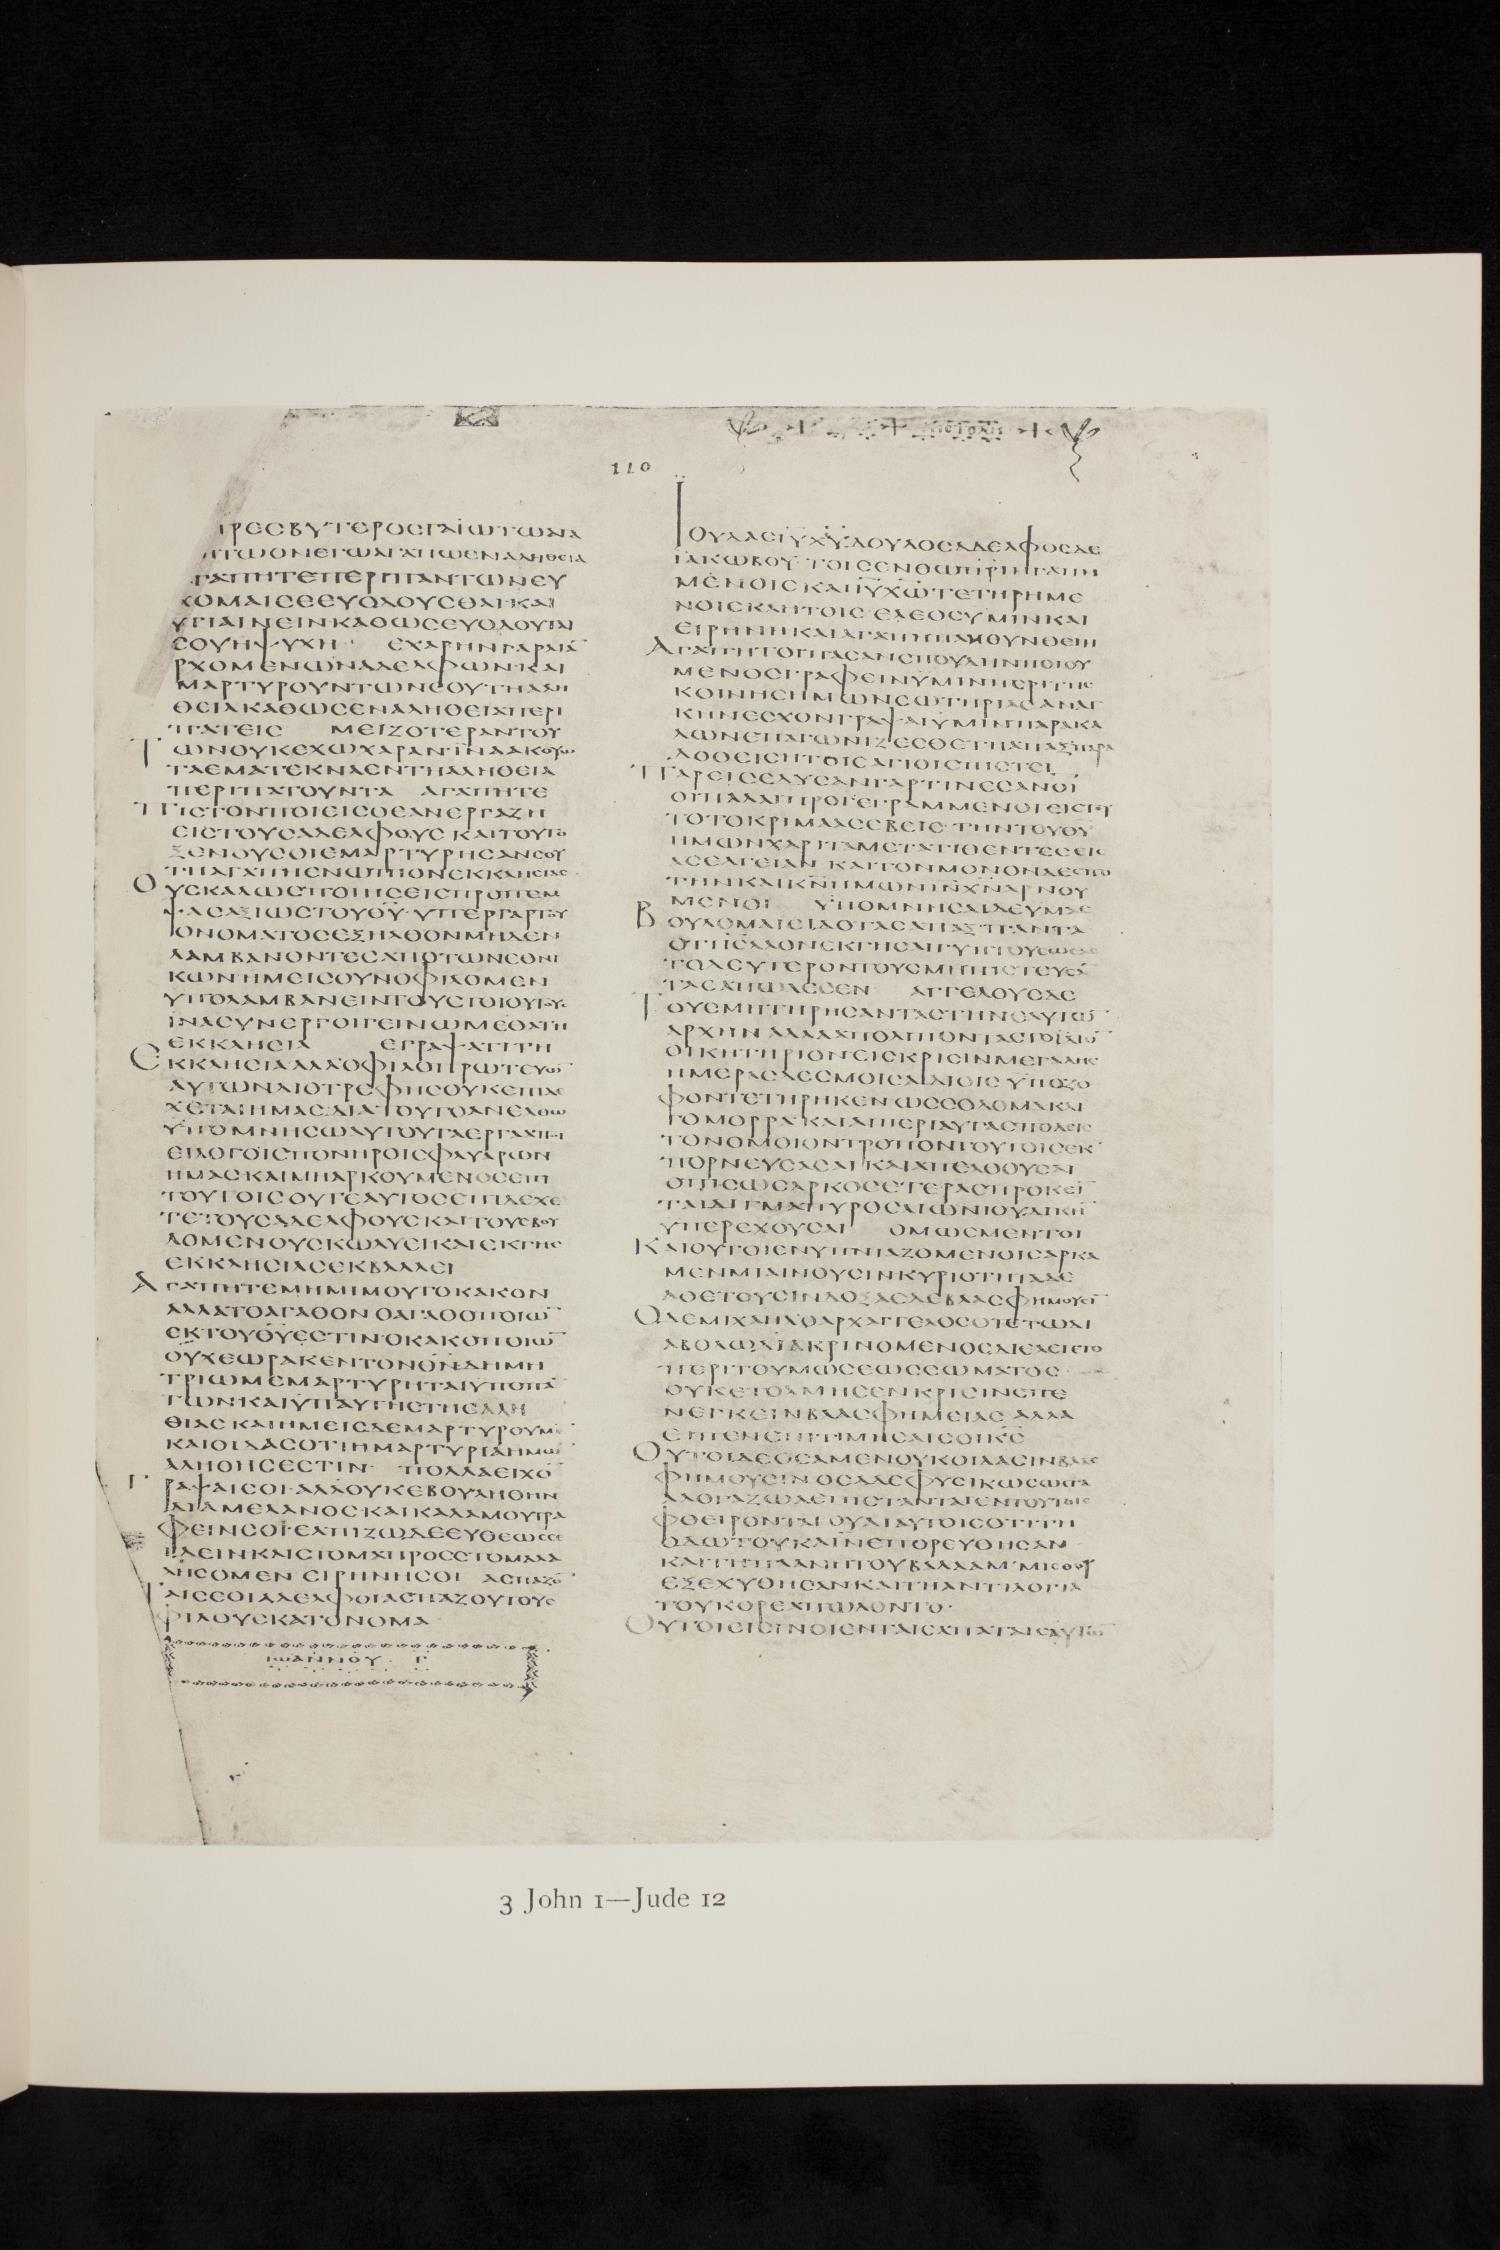 110
ΡΕϹΒΥΤΕΡΟϹΓΑΙΩΤΩΑ
ΗΤΩΟΝΕΓΩΑΓΑΠΩΕΝΑΛΗΘΕΙΑ
ΓΑΠΗΤΕΠΕΡΙΠΑΝΤΩΝΕΥ
ΧΟΜΑΙϹΕΕΥΟΔΟΥϹΘΑΙΚΑΙ
ΥΓΙΑΙΝΕΙΝΚΑΘΩϹΕΥΟΔΟΥΤΑΙ
ϹΟΥΗΨΥΧΗ· ΕΧΑΡΗΝΓΑΡΛΙΑ̅
ΡΧΟΜΕΝΩΝΑΔΕΛΦΩΝ·ΚΑΙ
ΜΑΡΤΥΡΟΥΝΤΩΝϹΟΥΤΗΑΛΗ
ΘΕΙΑΚΑΘΩϹϹΕΝΑΛΗΘΕΙΑΠΕΡΙ
ΠΑΤΕΙϹ ΜΕΙΖΟΤΕΡΑΝΤΟΥ
ΤΩΝΟΥΚΕΧΩΧΑΡΑΝ·ΙΝΑΑΚΟΥΩ
ΤΑΕΜΑΤΕΚΝΑΕΝΤΗΑΛΗΘΕΙΑ
ΠΕΡΙΠΑΤΟΥΝΤΑ ΑΓΑΠΗΤΕ
ΠΙϹΤΟΝΠΟΙΕΙϹΟΕΑΝΕΡΓΑΖΗ
ΕΙϹΤΟΥϹΑΔΕΛΦΟΥϹΚΑΙΤΟΥΤΟ
ΞΕΝΟΥϹΟΙΕΜΑΡΤΥΡΗϹΑΝϹΟΥ
ΤΗΑΓΑΠΗΕΝΩΠΙΟΝΕΚΚΛΗϹΙΑϹ·
ΟΥϹΚΑΛΩϹΠΟΙΗϹΕΙϹΠΡΟΠΕΜ
ΨΑϹΑΞΙΩϹΤΟΥΘ̅Υ̅·ΥΠΕΡΓΑΡΤΟΥ
ΟΝΟΜΑΤΟϹΕΞΗΛΘΟΝΜΗΔΕΝ
ΛΑΜΒΑΝΟΝΤΕϹΑΠΟΤΩΝΕΘΝΙ
ΚΩΝ·ΗΜΕΙϹΟΥΝΟΦΙΛΟΜΕΝ
ΥΠΟΛΑΜΒΑΝΕΙΝΤΟΥϹΤΟΙΟΥΤΟΥϹ·
ΙΝΑϹΥΝΕΡΓΟΙΓΕΙΝΩΜΕΘΑΤΗ
ΕΚΚΛΗϹΙΑ ΕΓΡΑΨΑΤΙΤΗ
ΕΚΚΛΗϹΙΑΑΛΛΟΦΙΛΟΠΡΩΤΕΥΩ̅
ΑΥΤΩΝΔΙΟΤΡΕΦΗϹΟΥΚΕΠΙΔΕ
ΧΕΤΑΙΗΜΑϹ·ΔΙΑΤΟΥΤΟΑΝΕΛΘΩ
ΥΠΟΜΝΗϹΩΑΥΤΟΥΤΑΕΡΓΑΑΠΟΙ
ΕΙΛΟΓΟΙϹΠΟΝΗΡΟΙϹΦΛΥΑΡΩΝ
ΗΜΑϹΚΑΙΜΗΑΡΚΟΥΜΕΝΟϹΕΠΙ
ΤΟΥΤΟΙϹΟΥΤΕΑΥΤΟϹΕΠΙΔΕΧΕ
ΤΕΤΟΥϹΑΔΕΛΦΟΥϹΚΑΙΤΟΥϹΒΟΥ
ΛΟΜΕΝΟΥϹΚΩΛΥΕΙΚΑΙΕΚΤΗϹ
ΕΚΚΛΗϹΙΑϹΕΚΒΑΛΛΕΙ
ΑΓΑΠΗΤΕΜΗΜΙΜΟΥΤΟΚΑΚΟΝ
ΑΛΛΑΤΟΑΓΑΘΟΝΟΑΓΑΘΟΠΟΙΩ̅
ΕΚΤΟΥΘ̅Υ̅ΕϹΤΙΝ·ΟΚΑΚΟΠΟΙΩ̅
ΟΥΧΕΩΡΑΚΕΝΤΟΝΘ̅Ν̅ΔΗΜΗ
ΤΡΙΩΜΕΜΑΡΤΥΡΗΤΑΙΥΠΟΠΑ̅
ΤΩΝ·ΚΑΙΥΠΑΥΤΗϹΤΗϹΑΛΗ
ΘΙΑϹΚΑΙΗΜΕΙϹΔΕΜΑΡΤΥΡΟΥΜΕ̅
ΚΑΙΟΙΔΑϹΟΤΙΗΜΑΡΤΥΡΙΑΗΜΩ̅
ΑΛΗΘΗϹΕϹΤΙΝ· ΠΟΛΛΑΕΙΧΟ̅
ΓΡΑΨΑΙϹΟΙ·ΑΛΛΟΥΚΕΒΟΥΛΗΘΗΝ
ΔΙΑΜΕΛΑΝΟϹΚΑΙΚΑΛΑΜΟΥΓΡΑ
ΦΕΙΝϹΟΙ·ΕΛΠΙΖΩΔΕΕΥΘΕΩϹϹΕ
ΙΔΕΙΝΚΑΙϹΤΟΜΑΠΡΟϹϹΤΟΜΑΛΑ
ΛΗϹΟΜΕΝ ΕΙΡΗΝΗϹΟΙ ΑϹΠΑΖΟ̅
ΤΑΙϹΕΟΙΑΔΕΛΦΟΙΑϹΠΑΖΟΥΤΟΥϹ
ΦΙΛΟΥϹΚΑΤΟΝΟΜΑ
ΙΩΑΝΝΟΥ Γ
ΙΟΥΔΑϹΙ̅Υ̅Χ̅Υ̅ΔΟΥΛΟϹΑΔΕΛΦΟϹΔΕ
ΙΑΚΩΒΟΥ·ΤΟΙϹΕΝΘ̅Ω̅Π̅Ρ̅Ι̅ΗΓΑΠΗ
ΜΕΝΟΙϹΚΑΙΙ̅Υ̅Χ̅Ω̅ΤΕΤΗΡΗΜΕ
ΝΟΙϹΚΛΗΤΟΙϹ·ΕΛΕΟϹΥΜΙΝΚΑΙ
ΕΙΡΗΝΗΚΑΙΑΓΑΠΗΠΛΗΘΥΝΘΕΙΗ
ΑΓΑΠΗΤΟΙΠΑϹΑΝϹΠΟΥΔΗΝΠΟΙΟΥ
ΜΕΝΟϹΓΡΑΦΕΙΝΥΜΙΝΠΕΡΙΤΗϹ
ΚΟΙΝΗϹΗΜΩΝϹΩΤΗΡΙΑϹΑΝΑΓ
ΚΗΝΕϹΧΟΝΓΡΑΨΑΙΥΜΙΝΠΑΡΑΚΑ
ΛΩΝΕΠΑΓΩΝΙΖΕϹΘΕΤΗΑΠΑΞΠΑΡΑ
ΔΟΘΕΙϹΗΤΟΙϹΑΓΙΟΙϹΠΙϹΤΕΙ
ΠΑΡΕΙϹΕΔΥϹΑΝΓΑΡΤΙΝΕϹΑΝΟΙ
ΟΙΠΑΛΑΙΠΡΟΓΕΓΡΑΜΜΕΝΟΙΕΙϹΤΟΥ
ΤΟΤΟΚΡΙΜΑΑϹΕΒΕΙϹ·ΤΗΝΤΟΥΘ̅Υ̅
ΗΜΩΝΧΑΡΙΤΑΜΕΤΑΤΙΘΕΝΤΕϹΕΙϹ
ΑϹΕΛΓΕΙΑΝ ΚΑΙΤΟΝΜΟΝΟΝΔΕϹΠΟ
ΤΗΝΚΑΙΚ̅Ν̅ΗΜΩΝΙ̅Ν̅Χ̅Ν̅ΑΡΝΟΥ
ΜΕΝΟΙ ΥΠΟΜΝΗϹΑΙΔΕΥΜΑϹ
ΒΟΥΛΟΜΑΙΕΙΔΟΤΑϹΑΠΑΞΠΑΝΤΑ
ΟΤΙΙ̅Ϲ̅ΛΑΟΝΕΚΓΗϹΑΙΓΥΠΤΟΥϹΩϹΑϹ
ΤΟΔΕΥΤΕΡΟΝΤΟΥϹΜΗΠΙϹΤΕΥϹΑ̅
ΤΑϹΑΠΩΛΕϹΕΝ ΑΓΓΕΛΟΥϹΔΕ
ΤΟΥϹΜΗΤΗΡΗϹΑΝΤΑϹΤΗΝΕΑΥΤΩ̅
ΑΡΧΗΝΑΛΛΑΑΠΟΛΙΠΟΝΤΑϹΤΟΙΔΙΟ̅
ΟΙΚΗΤΗΡΙΟΝΕΙϹΚΡΙϹΙΝΜΕΓΑΛΗϹ
ΗΜΕΡΑϹΔΕϹΜΟΙϹΑΙΔΙΟΙϹΥΠΟΖΟ
ΦΟΝΤΕΤΗΡΗΚΕΝΩϹϹΟΔΟΜΑΚΑΙ
ΓΟΜΟΡΡΑΚΑΙΑΙΠΕΡΙΑΥΤΑϹΠΟΛΕΙϹ
ΤΟΝΟΜΟΙΟΝΤΡΟΠΟΝΤΟΥΤΟΙϹΕΚ
ΠΟΡΝΕΥϹΑϹΑΙΚΑΙΑΠΕΛΘΟΥϹΑΙ
ΟΠΙϹΩϹΑΡΚΟϹΕΤΕΡΑϹΠΡΟΚΕΙ̅
ΤΑΙΔΙΓΜΑΠΥΡΟϹΑΙΩΝΙΟΥΔΙΚΗ̅
ΥΠΕΡΕΧΟΥϹΑΙ ΟΜΩϹΜΕΝΤΟΙ
ΚΑΙΟΥΤΟΙΕΝΥΠΝΙΑΖΟΜΕΝΟΙϹΑΡΚΑ
ΜΕΝΜΙΑΙΝΟΥϹΙΝΚΥΡΙΟΤΗΤΑΔΕ
ΑΘΕΤΟΥϹΙΝΔΟΞΑϹΔΕΒΛΑϹΦΗΜΟΥϹΙ̅
ΟΔΕΜΙΧΑΗΛΟΑΡΧΑΓΓΕΛΟϹΟΤΕΤΩΔΙ
ΑΒΟΛΩΔΙΑΚΡΙΝΟΜΕΝΟϹΔΙΕΛΕΓΕΤΟ
ΠΕΡΙΤΟΥΜΩϹΕΩϹϹΩΜΑΤΟϹ
ΟΥΚΕΤΟΛΜΗϹΕΝΚΡΙϹΙΝΕΠΕ
ΝΕΓΚΕΙΝΒΛΑϹΦΗΜΕΙΑϹ·ΑΛΛΑ
ΕΙΠΕΝΕΠΙΤΙΜΗϹΑΙϹΟΙΚ̅Ϲ̅
ΟΥΤΟΙΔΕΟϹΑΜΕΝΟΥΚΟΙΔΑϹΙΝΒΛΑϹ
ΦΗΜΟΥϹΙΝΟϹΑΔΕΦΥϹΙΚΩϹΩϹΤΑ
ΑΛΟΓΑΖΩΑΕΠΙϹΤΑΝΤΑΙΕΝΤΟΥΤΟΙϹ
ΦΘΕΙΡΟΝΤΑΙΟΥΑΙΑΥΤΟΙϹΟΤΙΤΗ
ΟΔΩΤΟΥΚΑΙΝΕΠΟΡΕΥΘΗϹΑΝ
ΚΑΙΤΗΠΛΑΝΗΤΟΥΒΑΛΑΑΜ·ΜΙϹΘΟΥ
ΕΞΕΧΥΘΗϹΑΝΚΑΙΤΗΑΝΤΙΛΟΓΙΑ
ΤΟΥΚΟΡΕΑΠΩΛΟΝΤΟ·
ΟΥΤΟΙΕΙϹΙΝΟΙΕΝΤΑΙϹΑΠΑΤΑΙϹΑΥΤΩ̅
3 John 1—Jude 12